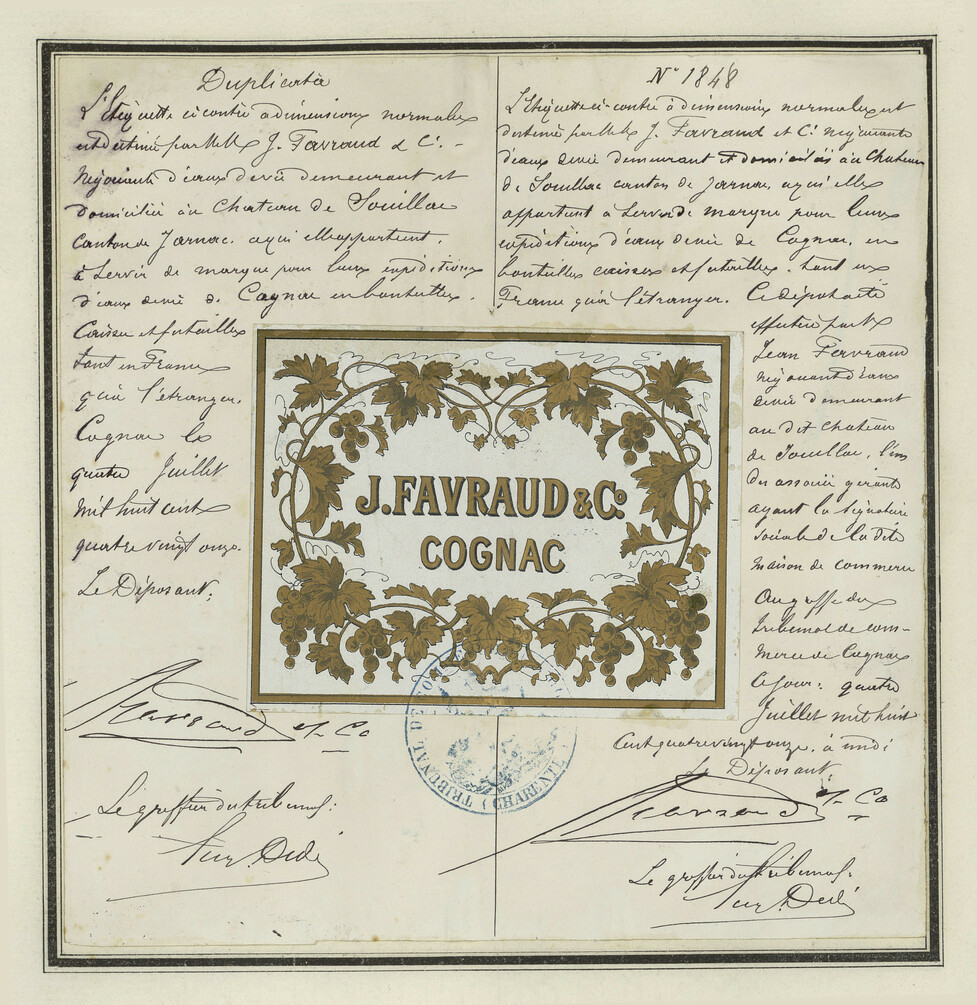 Duplicata
L'étiquette ci contre a dimensions normales
est destinée par MM. J. Favraud & Cie. -
Négociants d'eaux de vie demeurant et
domiciliés au Chateau de Souillac
Canton de Jarnac. a qui elle appartient.
à servir de marque pour leurs expéditions
d'eaux de vie de Cognac en bouteilles.
Caisses et futailles
tant en France
qu'à l'étranger.
Cognac le
quatre Juillet
Mil huit cent
quatre vingt onze.
Le Déposant.
Favraud et Co
Le greffier du tribunal:
N° 1848
L'étiquette ci-contre à dimensions normales est
destinée par MM. J. Favraud et Cie Négociants
d'eaux de vie demeurant et domiciliés au Chateau
de Souillac canton de Jarnac, a qui elle
appartient à servir de marque pour leurs
expéditions d'eaux de vie de Cognac, en
bouteilles caisses et futailles. tant en
France qu'à l'étranger. Ce dépôt a été
effectué par M.
Jean Favraud
négociant d'eaux
de vie demeurant
au dit chateau
de Souillac, l'un
des associés gérants
ayant la signature
sociale de la dite
maison de commerce
Au greffe du
tribunal de com-
merce de Cognac
Ce jour: quatre
Juillet mil huit
Cent quatre vingt onze, à midi
Le Déposant.
Favraud et Co
Le greffier du tribunal:
J. FAVRAUD & Co.
COGNAC
TRIBUNAL DE COM
(CHARENTE)